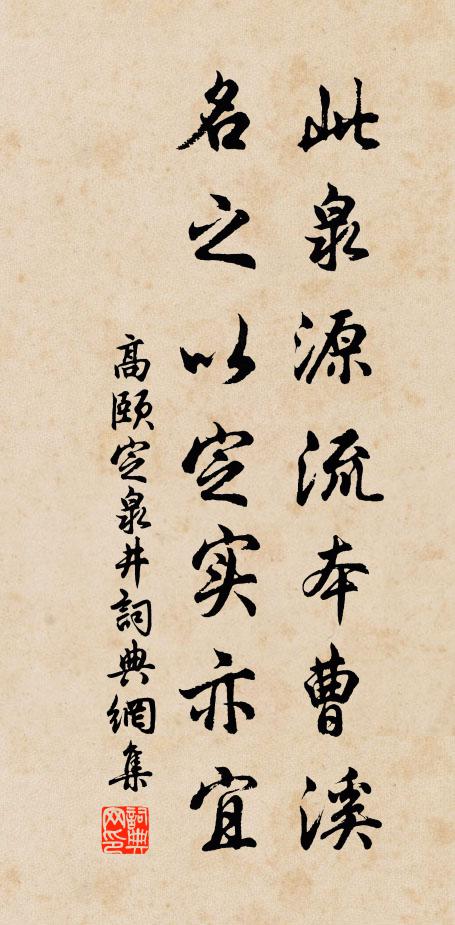 此泉源流本曹溪
名之以定实亦宜
高頤定泉井詞典網集
詞典网印